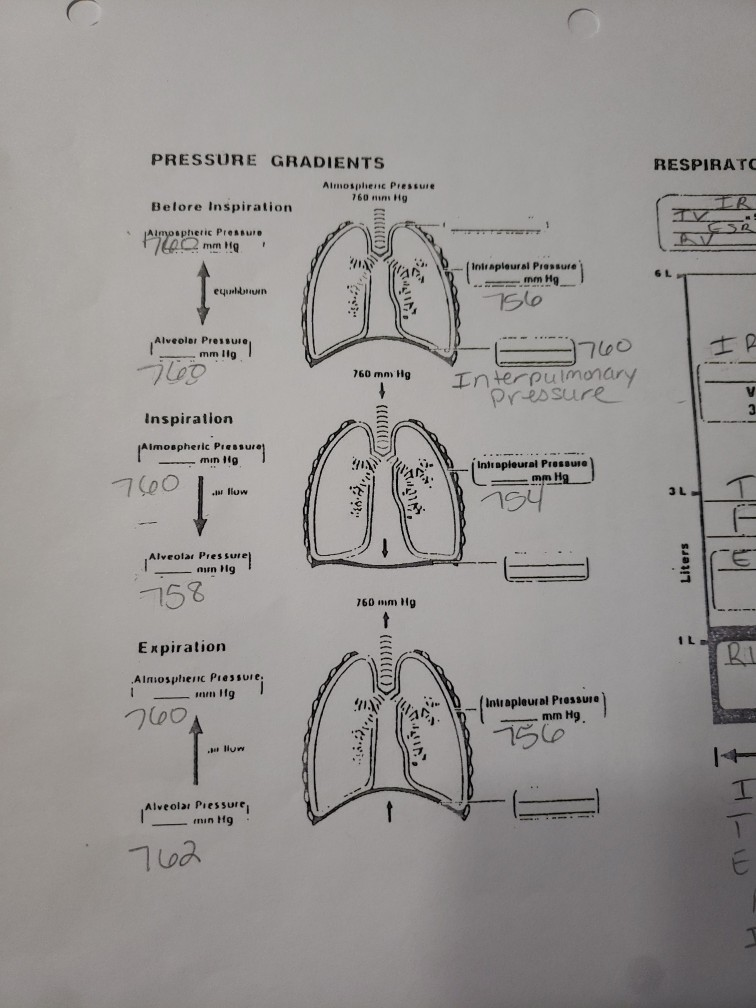 PRESSURE GRADIENTS
RESPIRATO
Atmospheric Pressure
760 mm Hg
Before Inspiration
Atmospheric Pressure
760 mm Hg
equilibrium
Alveolar Pressure
mm Hg
760
Intrapleural Pressure
mm Hg
756
760
Interpulmonary
pressure
IR
TV
RV
6 L
IR
V
3
760 mm Hg
Inspiration
Atmospheric Pressure
mm Hg
760
air flow
Alveolar Pressure
mm Hg
758
Intrapleural Pressure
mm Hg
754
3 L
T
E
Liters
760 mm Hg
Expiration
Atmospheric Pressure
mm Hg
760
air flow
Alveolar Pressure
mm Hg
762
Intrapleural Pressure
mm Hg
756
1 L
I
T
E
I